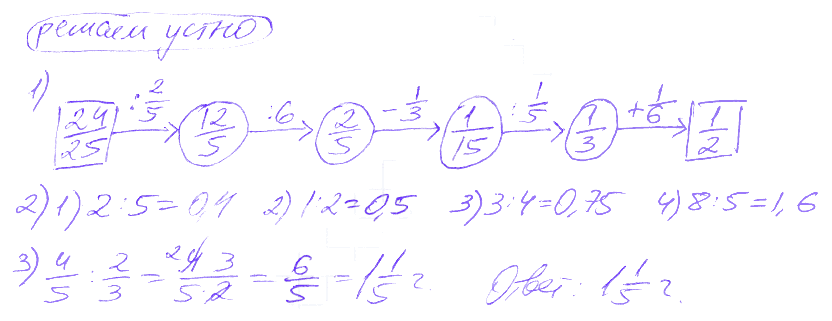 решаем устно
1) 24/25 :2/5 → 12/5 :6 → 2/5 -1/3 → 1/15 :1/5 → 1/3 +1/6 → 1/2
2) 1) 2:5=0,4 2) 1:2=0,5 3) 3:4=0,75 4) 8:5=1,6
3) 4/5 : 2/3 = ²4 3/5·2 = 6/5 = 1 1/5 г. Ответ: 1 1/5 г.